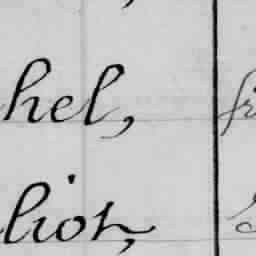 hel,
liot,